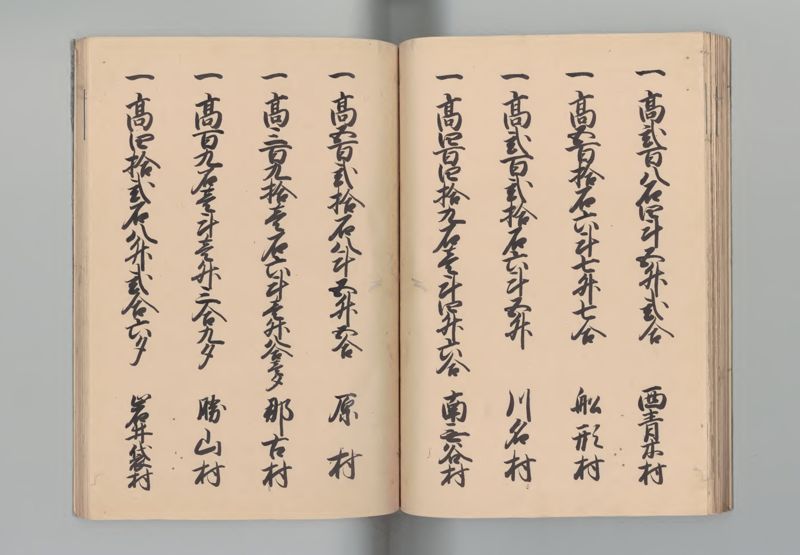 一高弐百八石四斗五升弐合 西青木村
一高五百拾石六斗七升七合 船形村
一高弐百弐拾石六斗五升 川名村
一高四百四拾九石壱斗四升六合 南無谷村
一高五百弐拾石八斗五升五合 原村
一高三百九拾壱石六斗七升八合壱夕 那古村
一高百九石壱斗壱升三合九夕 勝山村
一高四拾弐石八升弐合六夕 岩井袋村